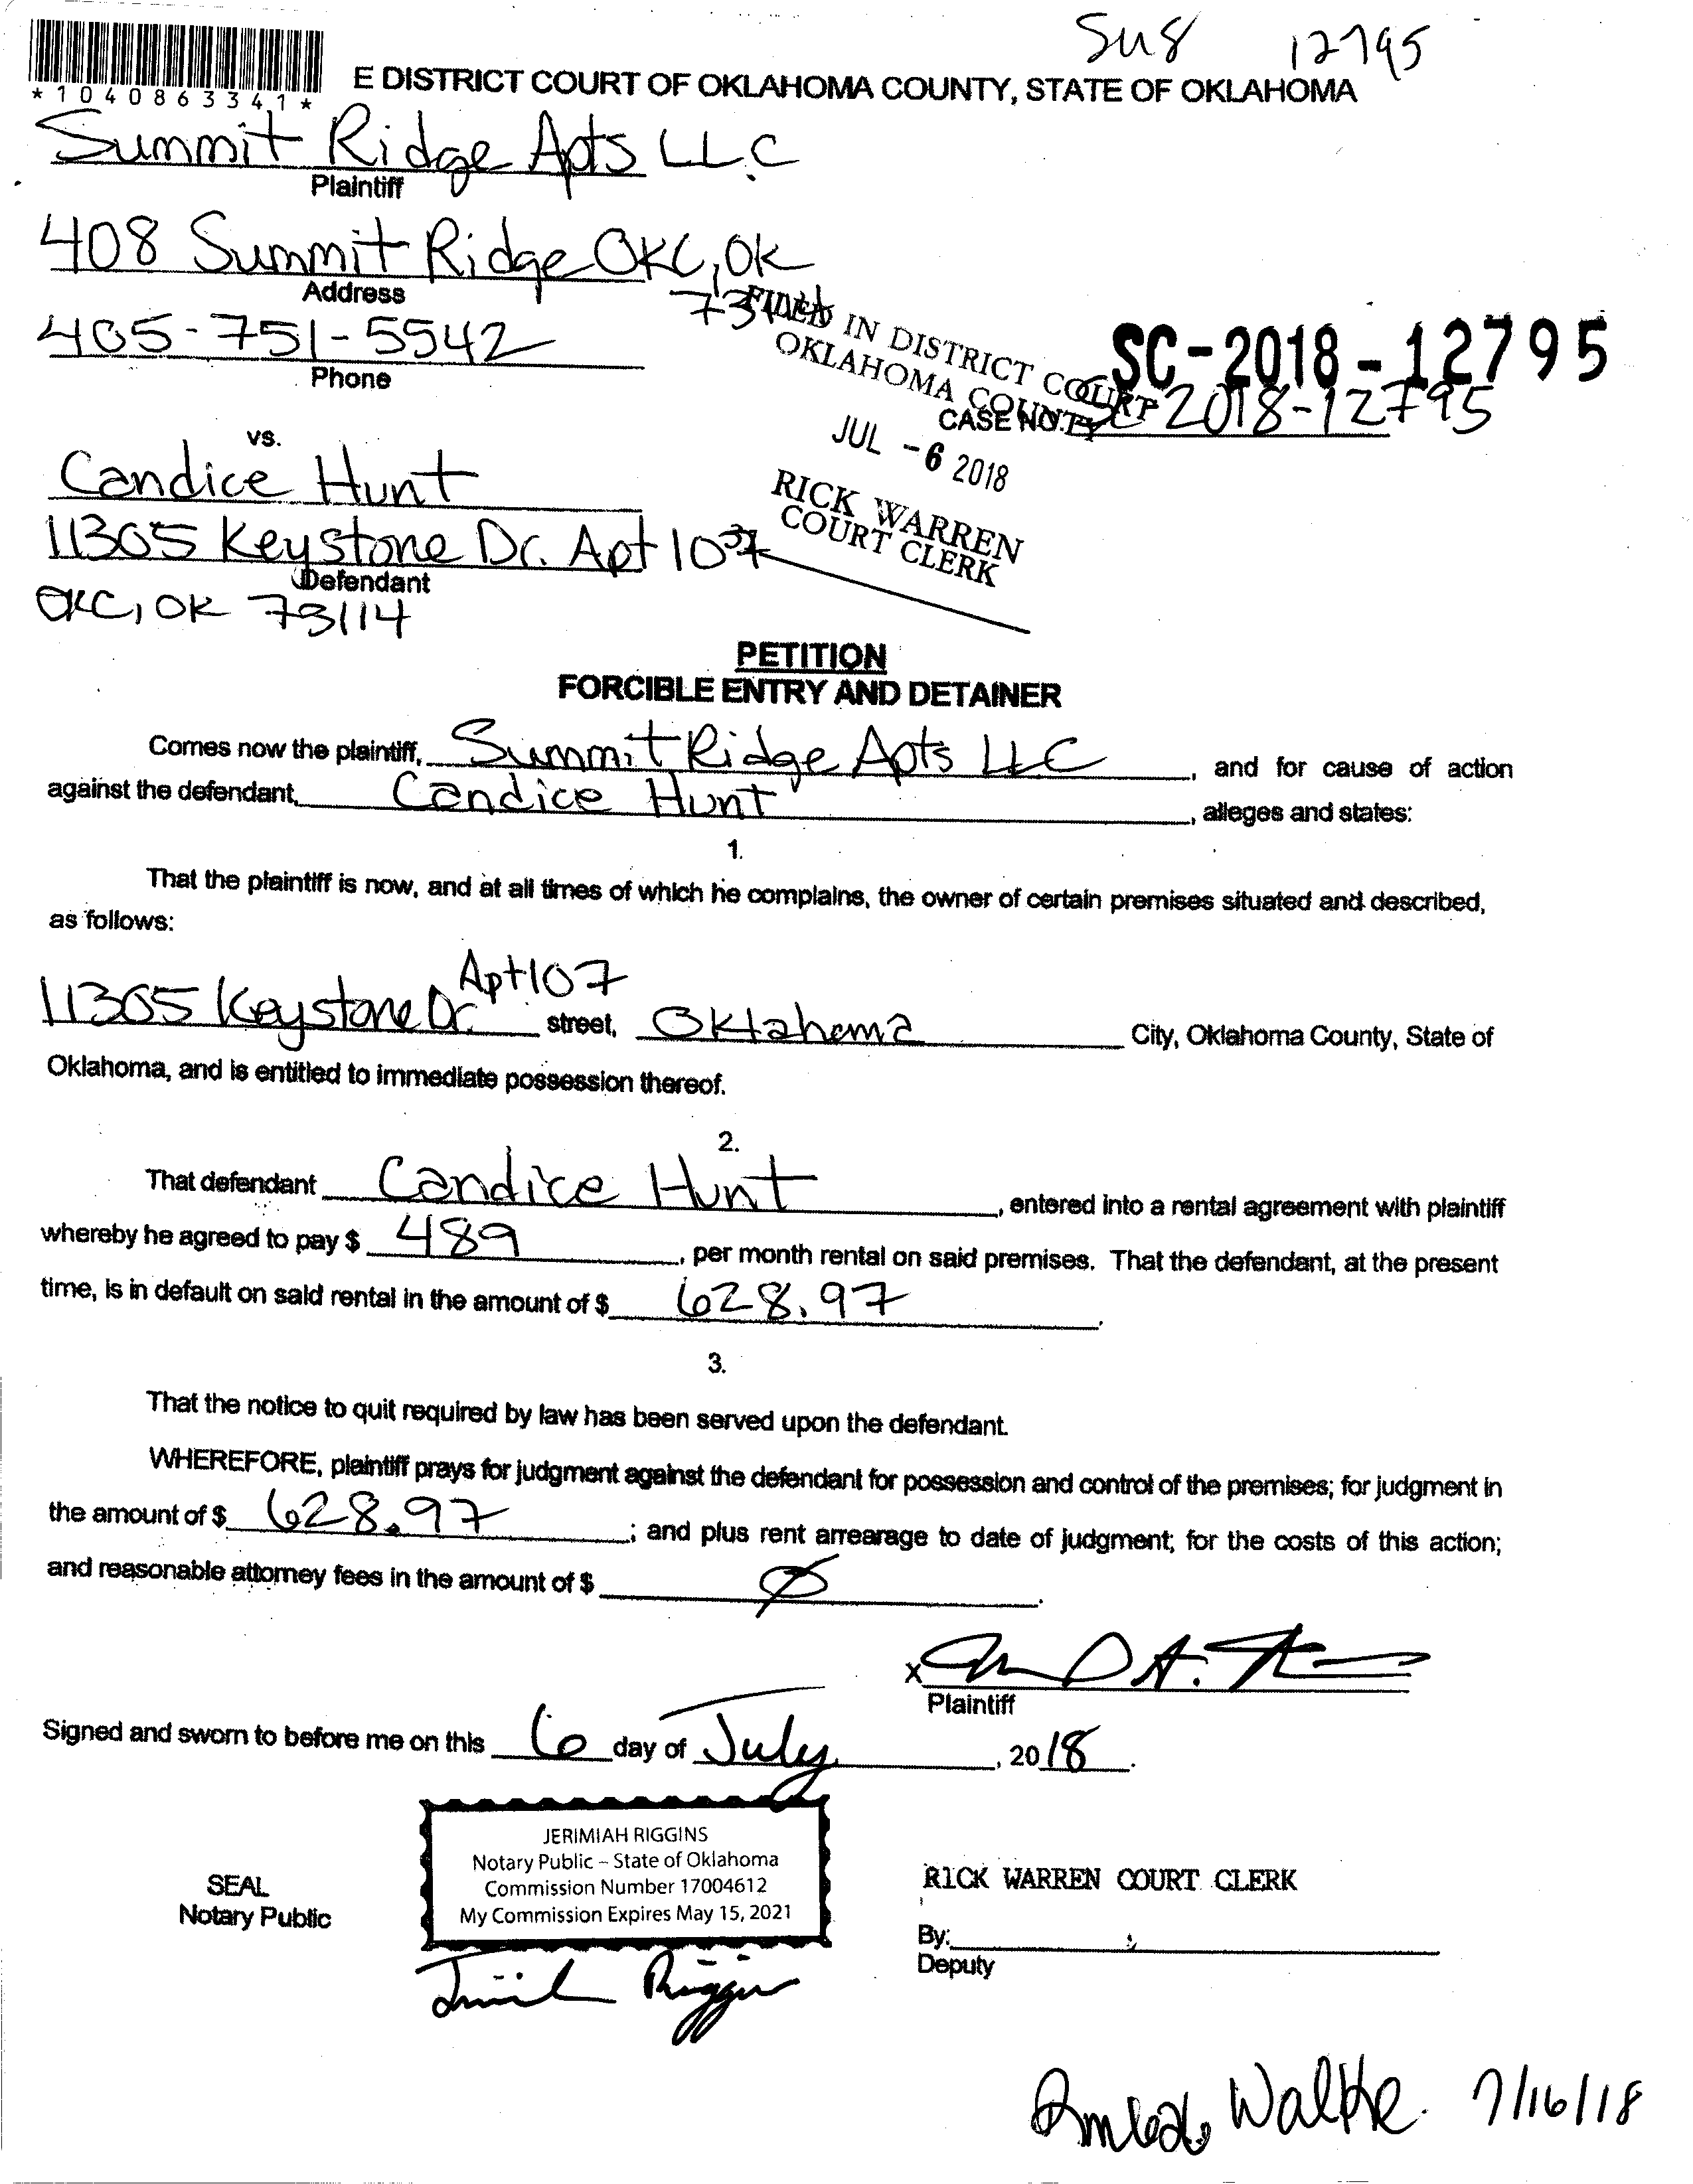 Su8 12795
*1040863341*
E DISTRICT COURT OF OKLAHOMA COUNTY, STATE OF OKLAHOMA
Summit Ridge Apts LLC
Plaintiff
408 Summit Ridge OKC, OK
Address
405-751-5542
Phone
FILED IN DISTRICT COURT
OKLAHOMA COUNTY
JUL -6 2018
RICK WARREN
COURT CLERK
SC-2018-12795
CASE NO. 2018-12795
vs.
Candice Hunt
11305 Keystone Dr. Apt 107
Defendant
OKC, OK 73114
PETITION
FORCIBLE ENTRY AND DETAINER
Comes now the plaintiff, Summit Ridge Apts LLC, and for cause of action
against the defendant, Candice Hunt, alleges and states:
1.
That the plaintiff is now, and at all times of which he complains, the owner of certain premises situated and described,
as follows:
11305 Keystone Dr. Apt 107 street, Oklahoma City, Oklahoma County, State of
Oklahoma, and is entitled to immediate possession thereof.
2.
That defendant Candice Hunt, entered into a rental agreement with plaintiff
whereby he agreed to pay $ 489, per month rental on said premises. That the defendant, at the present
time, is in default on said rental in the amount of $ 628.97.
3.
That the notice to quit required by law has been served upon the defendant.
WHEREFORE, plaintiff prays for judgment against the defendant for possession and control of the premises; for judgment in
the amount of $ 628.97; and plus rent arrearage to date of judgment; for the costs of this action;
and reasonable attorney fees in the amount of $ Ø.
X
Plaintiff
Signed and sworn to before me on this 6 day of July, 2018.
JERIMIAH RIGGINS
Notary Public – State of Oklahoma
Commission Number 17004612
My Commission Expires May 15, 2021
SEAL
Notary Public
RICK WARREN COURT CLERK
By:
Deputy
7/16/18